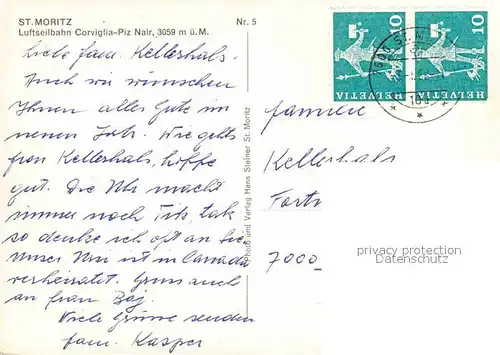 ST. MORITZ
Luftseilbahn Corviglia-Piz Nair, 3059 m ü. M.
Nr. 5
Liebe fam. Kellerhals.
Auch wir wünschen
Ihnen alles Gute im
neuen Jahr. Wie gehts
frau Kellerhals, hoffe
gut. Die Uhr macht
immer noch Tik, tak
so denke ich oft an Sie
Unser Urs ist in Canada
verheiratet. Gruss auch
an frau Baj.
Viele Grüsse senden
fam. Kasper
Photo und Verlag Hans Steiner St. Moritz
familie
Kellerhals
7000
10
HELVETIA
10
HELVETIA
privacy protection
Datenschutz